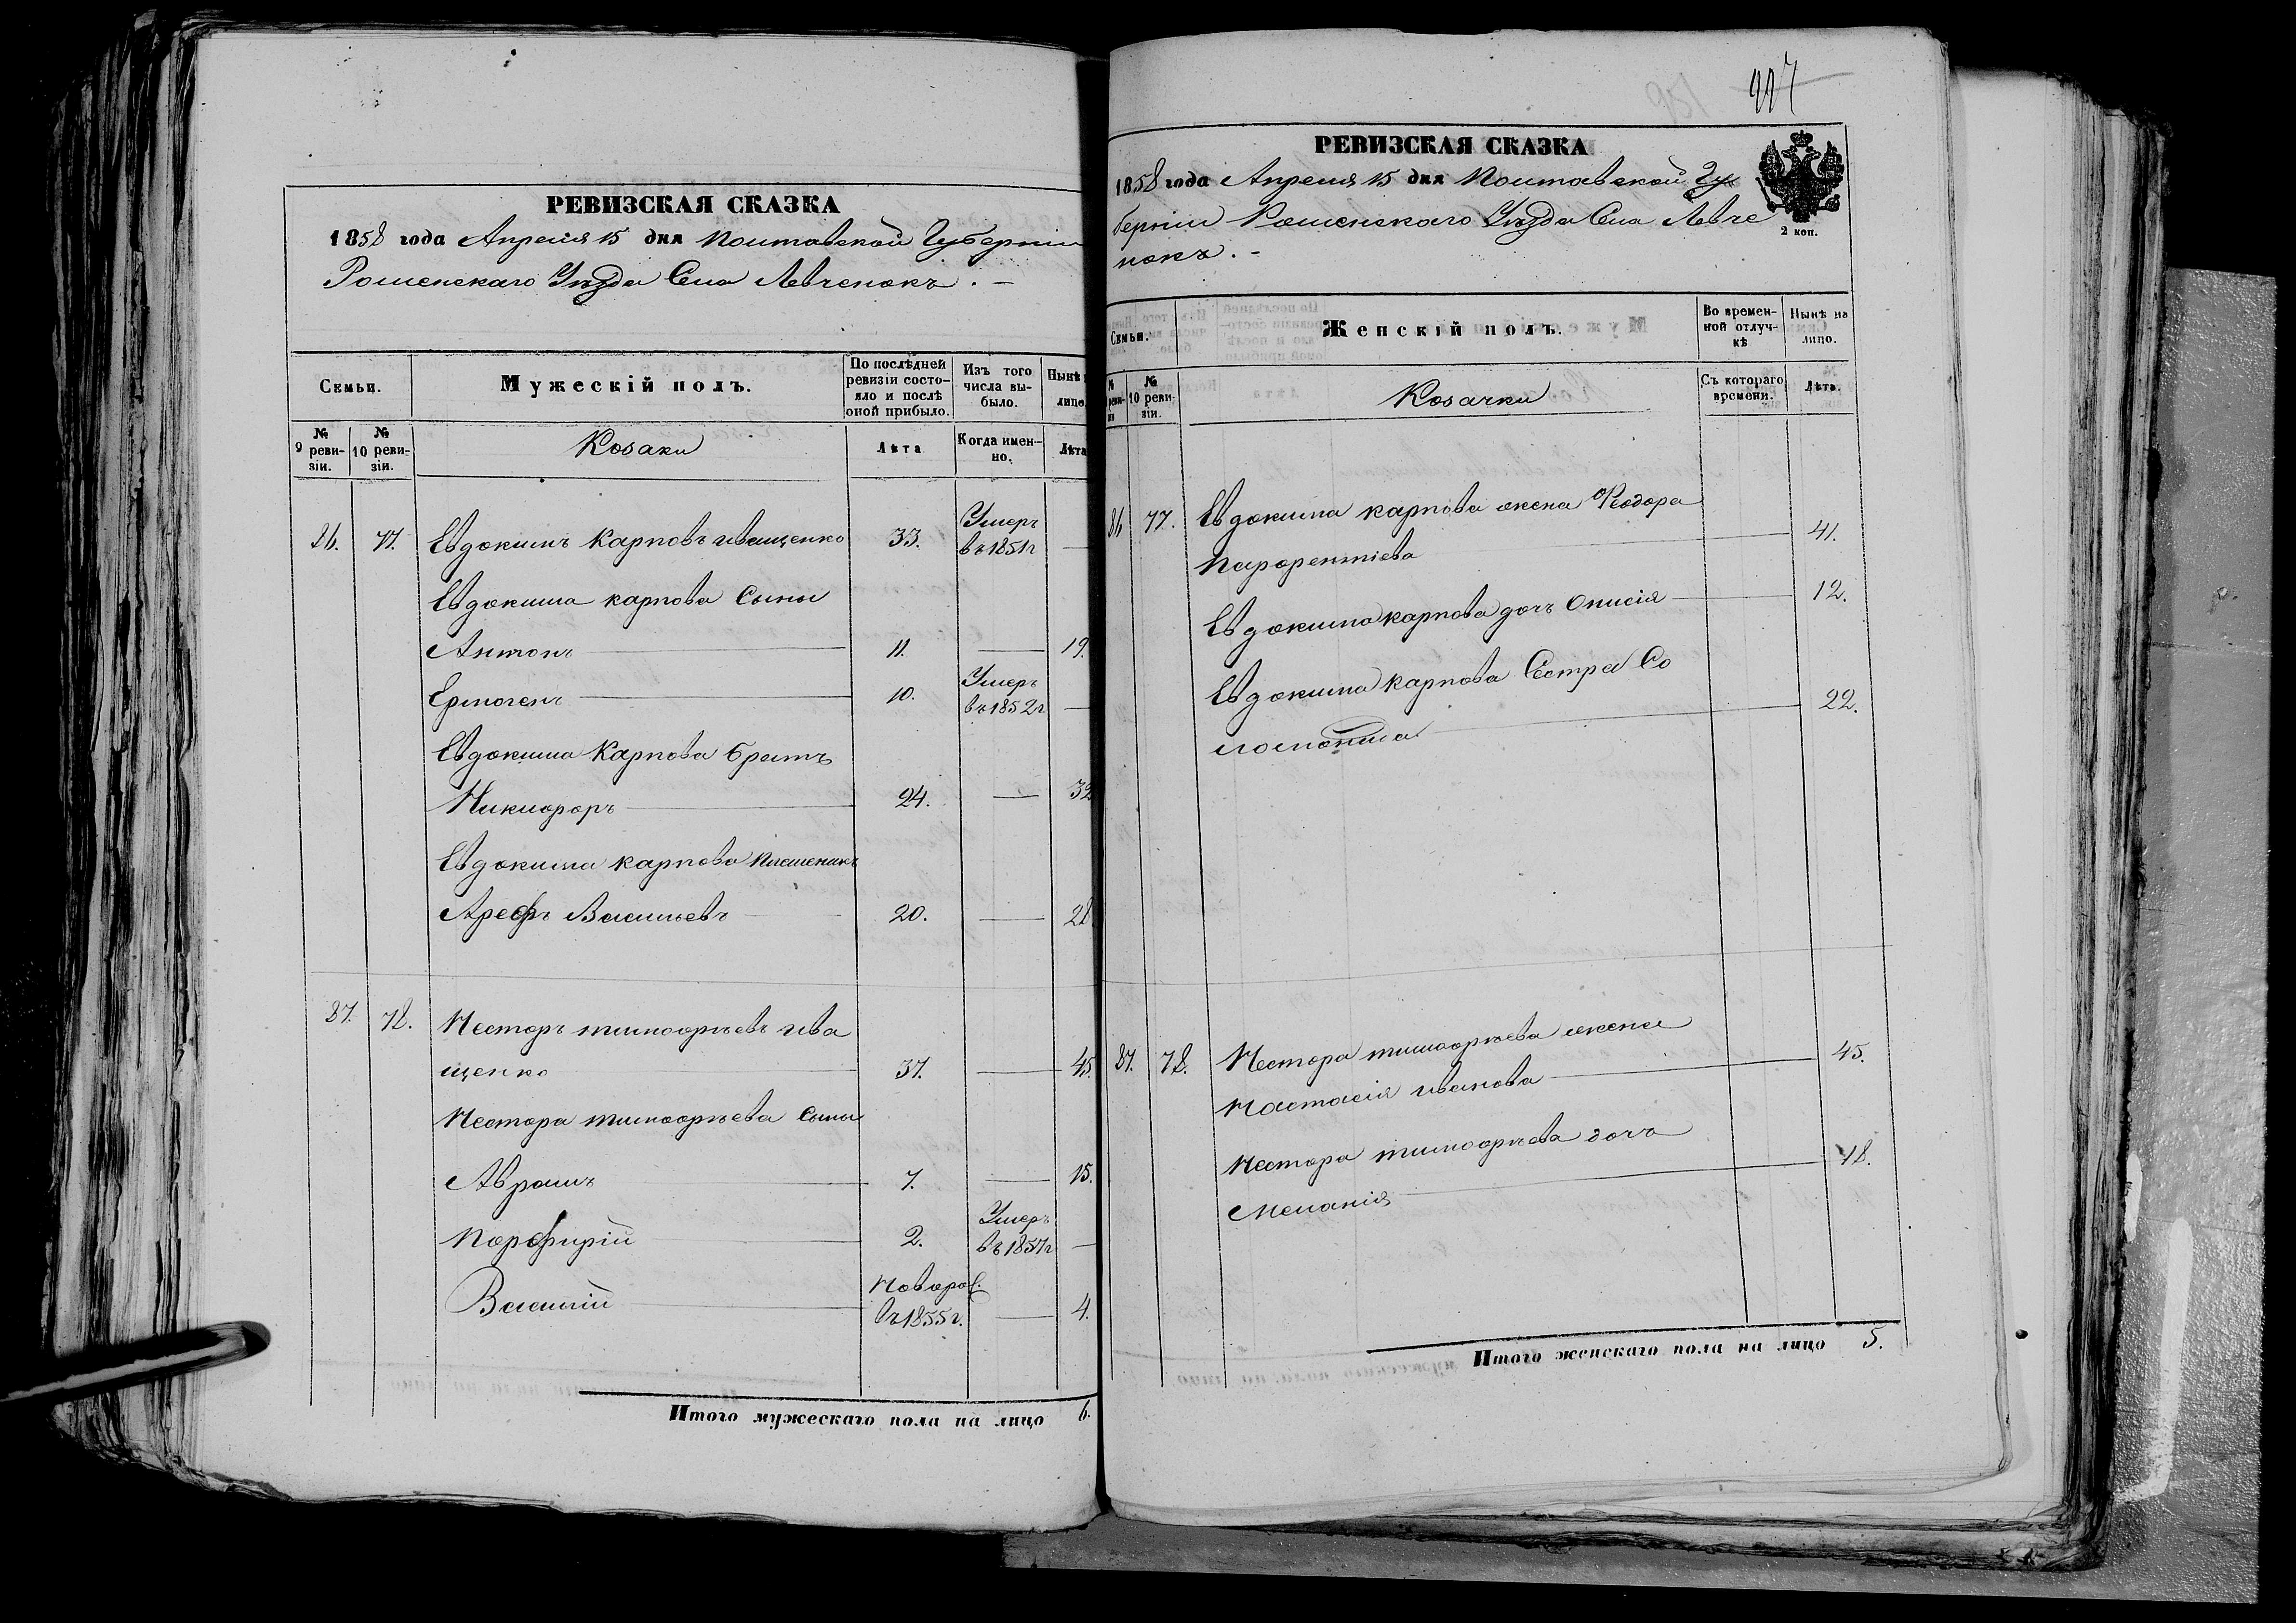 РЕВИЗСКАЯ СКАЗКА
1858 года Апреля 15 дня Полтавской Губерніи
Роменскаго Уѣзда Села Левченокъ . –
Семьи.
Мужескій полъ.
По послѣдней ревизіи состо-
яло и послѣ
оной прибыло.
Изъ того
числа вы-
было.
Нынѣ
лицо
№
9 реви-
зіи.
№
10 реви-
зіи.
Козаки
Лѣта
Когда имен-
но.
Лѣта
86. 77. Евдокимъ Карповъ иващенко 33. Умеръ въ 1851г —
Евдокима карпова Сыны
Антонъ 11. — 19.
Ермогенъ 10. Умеръ въ 1852г —
Евдокима Карпова братъ
Никифоръ 24. — 32
Евдокима карпова племеникъ
Арефъ Васильевъ 20. — 28
87. 78. Несторъ тимофѣевъ ива
щенко 37. — 45.
Нестора тимофѣева Сыны
Аврамъ 7. — 15.
Порфирій 2. Умеръ въ 1857г —
Василій Новорож. въ 1855г. — 4.
Итого мужескаго пола на лицо 6.
997
РЕВИЗСКАЯ СКАЗКА
1858 года Апреля 15 дня Полтавской Гу
берніи Роменскаго Уѣзда Села Левче
нокъ . –
2 коп.
Семьи.
Женскій полъ.
Во времен-
ной отлуч-
кѣ
Нынѣ на
лицо.
№
реви-
зіи
№
10 реви-
зіи.
Козачки
Съ котораго
времени.
Лѣта.
86 77. Евдокима карпова жена Феодора
Парфентіева 41.
Евдокима карпова дочь Онисія 12.
Евдокима карпова Сестра Со
ломонида 22.
87. 78. Нестора тимофѣева жена
Настасія иванова 45.
Нестора тимофѣева дочь
Меланія 18.
Итого женскаго пола на лицо 5.